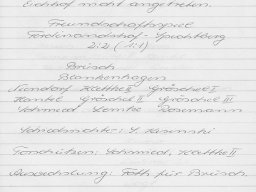 Eichhof nicht angetreten.
Freundschaftsspiel
Ferdinandshof - Spechtberg
2:2 (1:1)
Brüsch
Blankenhagen
Nimdorf Kottke II Gröschel I
Henkel Gröschel II Gröschel III
Schmied Lemke Dosemann
Schiedsrichter: S.
Torschützen: Schmied, Kottke II
Auswechslung: Foth für Brüsch